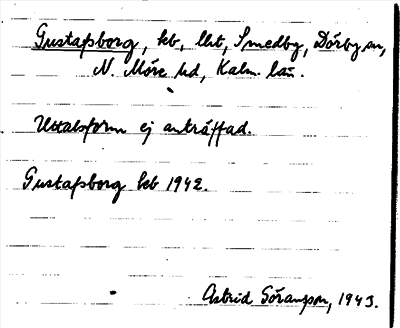 Gustafsborg, kb, lht, Smedby, Dörby sn,
N. Möre hd, Kalm. län.
Uttalsform ej anträffad.
Gustafsborg kb 1942.
Astrid Göransson, 1943.